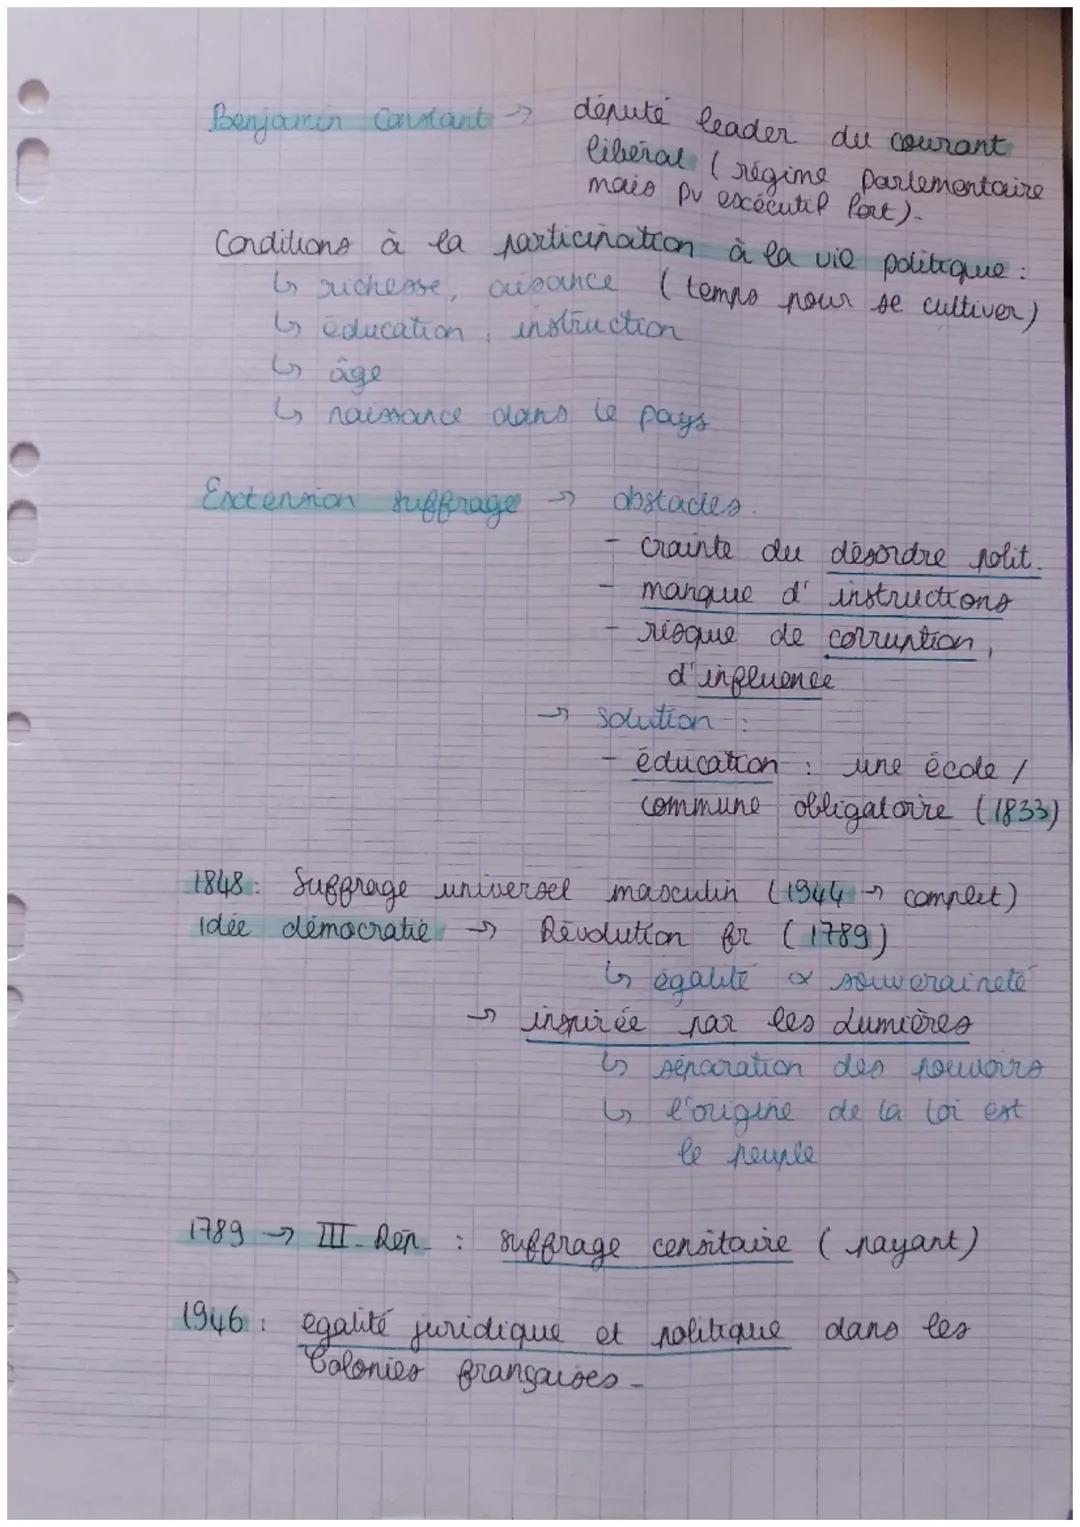 Benjamin Constant → député leader du courant
libéral (régime parlementaire
mais pv exécutif fort).
Conditions à la participation à la vie politique :
↳ richesse, aisance (temps pour se cultiver)
↳ éducation, instruction
↳ âge
↳ naissance dans le pays
Extension suffrage → obstacles.
- crainte du désordre polit.
- manque d'instructions
- risque de corruption,
d'influence
→ solution :
- éducation : une école /
commune obligatoire (1833)
1848 : Suffrage universel masculin (1944 → complet)
Idée démocratie → Révolution fr (1789)
↳ égalité & souveraineté
→ inspirée par les Lumières
↳ séparation des pouvoirs
↳ l'origine de la loi est
le peuple
1789 → III. Rép. : suffrage censitaire (payant)
1946 : egalité juridique et politique dans les
Colonies françaises.